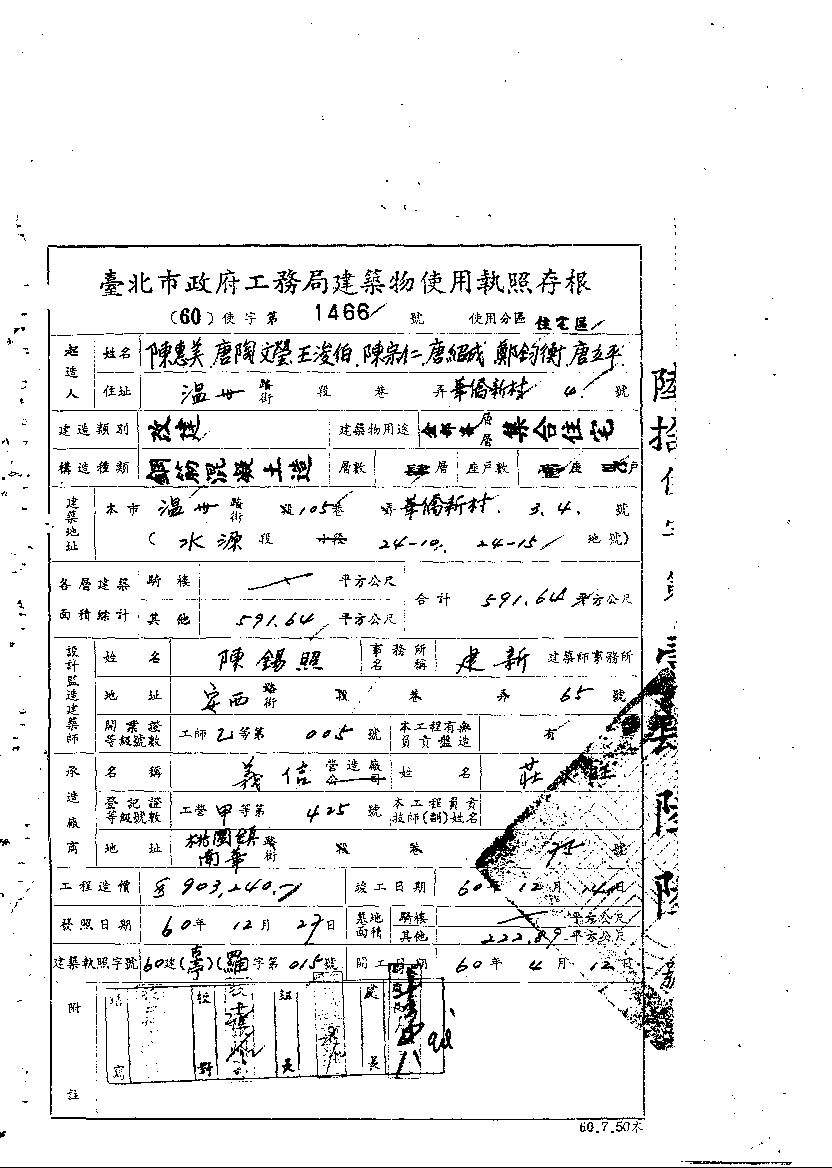 臺北市政府工務局建築物使用執照存根
(60)使字第 1466 號 使用分區 住宅區
起造人 姓名 陳惠美.唐陶文瑩.王浚伯.陳宗仁.唐紹成.鄭鈞衡.唐立平
住址 温州 路街 段 巷 弄 華僑新村 4. 號
建造類別 改建 建築物用途 層層 集合住宅
構造種類 鋼筋混凝土造 層數 肆層 座戶數 座 戶
建築地址 本市 温州 路街 段 105巷 弄 華僑新村. 3.4. 號
(水源段 小段 24-10. 24-15 地號)
各層建築面積總計 騎樓 平方公尺 合計 591.64 平方公尺
其他 591.64 平方公尺
設計監造建築師 姓名 陳錫照 事務所名稱 建新 建築師事務所
地址 安西 路街 段 巷 弄 65 號
開業證等級號數 工師乙等第 005 號 本工程有無負責監造 有
承造廠商 名稱 義信 營造廠公司 姓名 莊
登記證等級號數 工營甲等第 425 號 本工程負責技師(副)姓名
地址 桃園鎮南華 路街 段 巷 75 號
工程造價 $903,240. 竣工日期 60年 12月 14日
發照日期 60年 12月 27日 基地面積 騎樓 平方公尺
其他 222.89 平方公尺
建築執照字號 60建( )( )字第015號 開工日期 60年 4月 12日
附註
填寫 校對 組長 處長
60.7.50本
陸拾